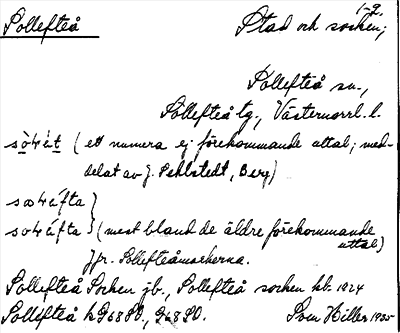 Sollefteå Stad och socken;
1-2.
Sollefteå sn.,
Sollefteå tg., Västernorrl. l.
(ett numera ej förekommande uttal; med-
delat av J. Sehlstedt, Berg)
(mest bland de äldre förekommande
uttal)
Jfr. Sollefteåmarkerna.
Sollefteå Socken jb., Sollefteå socken kb. 1924
Sollefteå Sven Hiller 1935